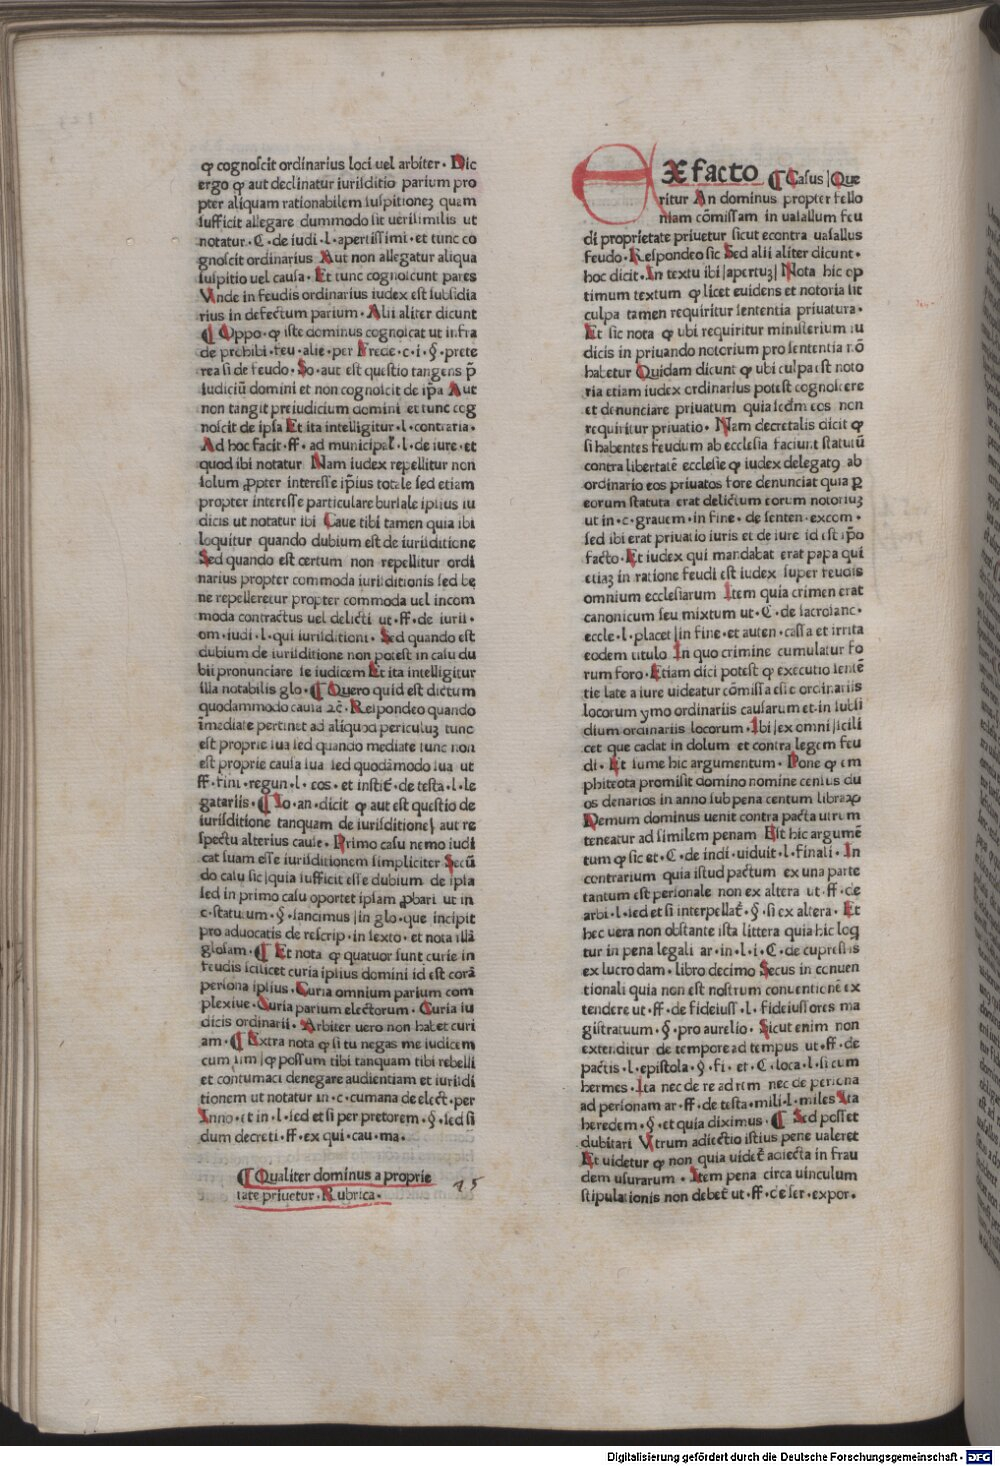 ꝙ cognoscit ordinarius loci uel arbiter. Dic
ergo ꝙ aut declinatur iurisditio parium pro
pter aliquam rationabilem suspitionez quam
sufficit allegare dummodo sit uerisimilis ut
notatur. C. de iudi. l. apertissimi. et tunc co
gnoscit ordinarius Aut non allegatur aliqua
suspitio uel causa. Et tunc cognoscunt pares
Unde in feudis ordinarius iudex est subsidia
rius in defectum parium. Alii aliter dicunt
¶ Oppo. ꝙ iste dominus cognoscat ut infra
de prohibi. feu. alie. per Frede. c. i. §. prete
rea si de feudo. So. aut est questio tangens p̄
iudiciū domini et non cognoscit de ip̄a Aut
non tangit preiudicium domini et tunc cog
noscit de ipsa Et ita intelligitur. l. contraria.
Ad hoc facit. ff. ad municipal̄. l. de iure. et
quod ibi notatur Nam iudex repellitur non
solum ꝓpter interesse ip̄ius totale sed etiam
propter interesse particulare bursale ipsius iu
dicis ut notatur ibi Caue tibi tamen quia ibi
loquitur quando dubium est de iurisditione
Sed quando est certum non repellitur ordi
narius propter commoda iurisditionis sed be
ne repelleretur propter commoda uel incom
moda contractus uel delicti ut. ff. de iuris.
om. iudi. l. qui iurisditioni. Sed quando est
dubium de iurisditione non potest in casu du
bii pronunciare se iudicem Et ita intelligitur
illa notabilis glo. ¶ Quero quid est dictum
quodammodo causa ⁊c̄. Respondeo quando
īmediate pertinet ad aliquod periculuz tunc
est proprie sua sed quando mediate tunc non
est proprie causa sua sed quodāmodo sua ut
ff. fini. regun. l. cos. et instit̄. de testa. l. le
gatariis. ¶ Io. an. dicit ꝙ aut est questio de
iurisditione tanquam de iurisditione| aut re
spectu alterius cause. Primo casu nemo iudi
cat suam esse iurisditionem simpliciter Secū
do casu sic|quia sufficit esse dubium de ipsa
sed in primo casu oportet ipsam ꝓbari ut in
c. statutum. §. sancimus|in glo. que incipit
pro aduocatis de rescrip. in sexto. et nota illā
glosam. ¶ Et nota ꝙ quatuor sunt curie in
feudis scilicet curia ipsius domini id est corā
persona ipsius. Curia omnium parium com
plexiue. Curia parium electorum. Curia iu
dicis ordinarii. Arbiter uero non habet curi
am. ¶ Extra nota ꝙ si tu negas me iudicem
cum sim|ꝙ possum tibi tanquam tibi rebelli
et contumaci denegare audientiam et iurisdi
tionem ut notatur in. c. cumana de elect. per
Inno. et in. l. sed et si per pretorem. §. sed si
dum decreti. ff. ex qui. cau. ma.
¶ Qualiter dominus a proprie
tate priuetur. Rubrica.
15
Ex facto ¶ Casus|Que
ritur An dominus propter fello
niam cōmissam in uasallum feu
di proprietate priuetur sicut econtra uasallus
feudo. Respondeo sic Sed alii aliter dicunt.
hoc dicit. In textu ibi|apertuz| Nota hic op
timum textum ꝙ licet euidens et notoria sit
culpa tamen requiritur sententia priuatura.
Et sic nota ꝙ ubi requiritur ministerium iu
dicis in priuando notorium pro sententia nō
habetur Quidam dicunt ꝙ ubi culpa est noto
ria etiam iudex ordinarius potest cognoscere
et denunciare priuatum quia secdm eos non
requiritur priuatio. Nam decretalis dicit ꝙ
si habentes feudum ab ecclesia faciunt statutū
contra libertatē ecclesie ꝙ iudex delegatꝰ ab
ordinario eos priuatos fore denunciat quia ꝑ
eorum statuta erat delictum eorum notoriuz
ut in. c. grauem. in fine. de senten. excom.
sed ibi erat priuatio iuris et de iure id est ip̄o
facto. Et iudex qui mandabat erat papa qui
etiaz in ratione feudi est iudex super feudis
omnium ecclesiarum Item quia crimen erat
canonicum seu mixtum ut. C. de sacrosanc.
eccle. l. placet|in fine. et auten. cassa et irrita
eodem titulo In quo crimine cumulatur fo
rum foro. Etiam dici potest ꝙ executio sentē
tie late a iure uideatur cōmissa esse ordinariis
locorum ymo ordinariis causarum et in subsi
dium ordinariis locorum. Ibi|ex omni|scili
cet que cadat in dolum et contra legem feu
di. Et sume hic argumentum. Pone ꝙ em
phiteota promisit domino nomine census du
os denarios in anno sub pena centum libraꝝ
Demum dominus uenit contra pacta utrum
teneatur ad similem penam Est hic argumē
tum ꝙ sic et. C. de indi. uiduit. l. finali. In
contrarium quia istud pactum ex una parte
tantum est personale non ex altera ut. ff. de
arbi. l. sed et si interpellat̄. §. si ex altera. Et
hec uera non obstante ista littera quia hic loq̄
tur in pena legali ar. in. l. i. C. de cupressis
ex luco dam. libro decimo Secus in conuen
tionali quia non est nostrum conuentionē ex
tendere ut. ff. de fideiuss. l. fideiussores ma
gistratuum. §. pro aurelio. Sicut enim non
extenditur de tempore ad tempus ut. ff. de
pactis. l. epistola. §. fi. et. C. loca. l. si cum
hermes. Ita nec de re ad rem nec de persona
ad personam ar. ff. de testa. mili. l. miles Ita
heredem. §. et quia diximus. ¶ Sed posset
dubitari Utrum adiectio istius pene ualeret
Et uidetur ꝙ non quia uidet̄ adiecta in frau
dem usurarum. Item pena circa uinculum
stipulationis non debet̄ ut. ff. de ser. expor.
Digitalisierung gefördert durch die Deutsche Forschungsgemeinschaft - DFG